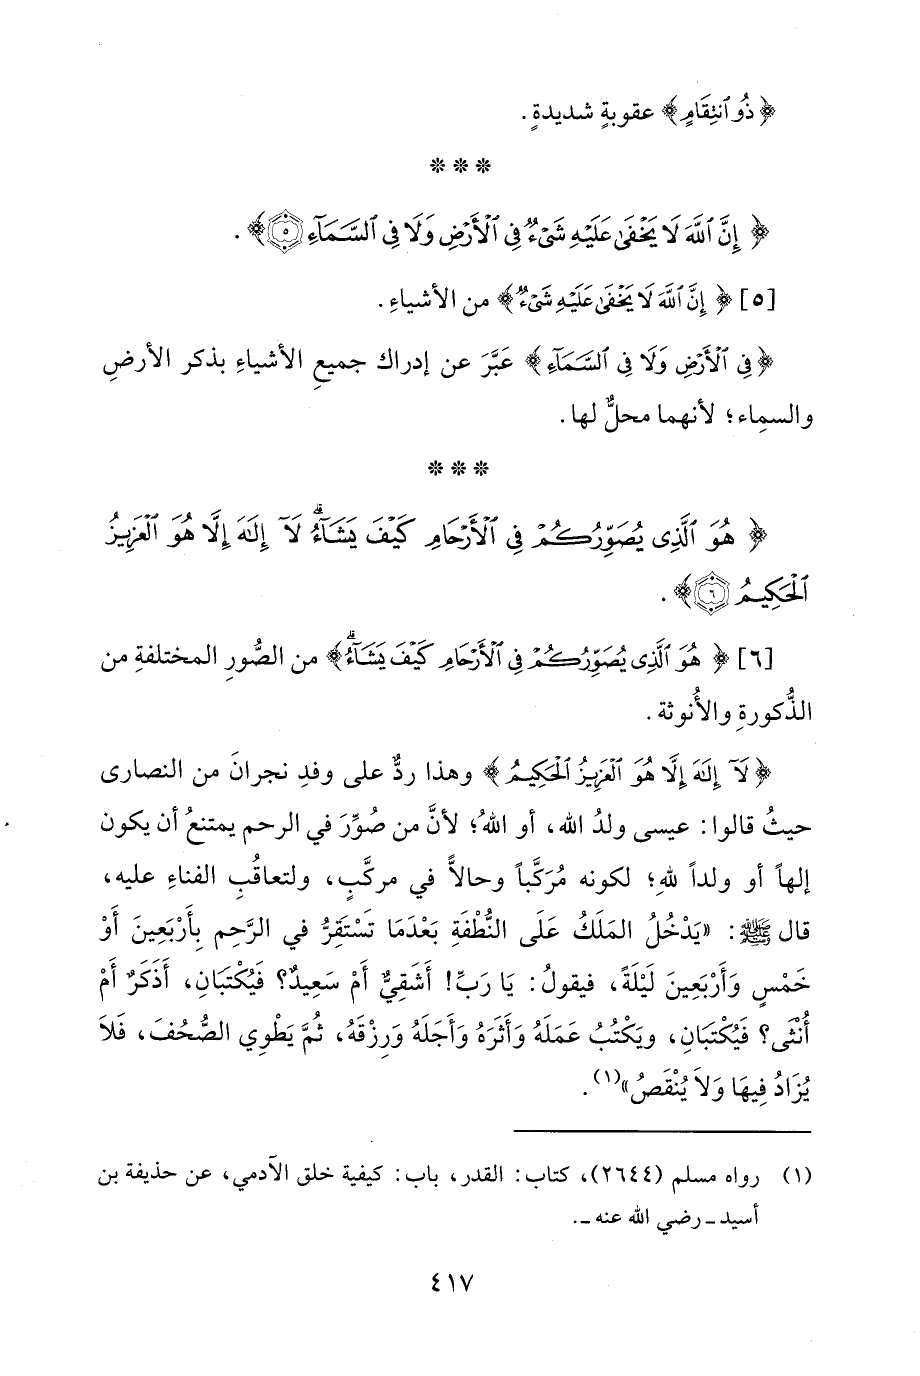 ﴿ذُو ٱنتِقَامٍ﴾ عقوبةٍ شديدةٍ.
* * *
﴿إِنَّ ٱللَّهَ لَا يَخْفَىٰ عَلَيْهِ شَىْءٌ فِى ٱلْأَرْضِ وَلَا فِى ٱلسَّمَآءِ ٥﴾.
[٥] ﴿إِنَّ ٱللَّهَ لَا يَخْفَىٰ عَلَيْهِ شَىْءٌ﴾ من الأشياءِ.
﴿فِى ٱلْأَرْضِ وَلَا فِى ٱلسَّمَآءِ﴾ عَبَّرَ عن إدراك جميعِ الأشياءِ بذكر الأرضِ
والسماء؛ لأنهما محلٌّ لها.
* * *
﴿هُوَ ٱلَّذِى يُصَوِّرُكُمْ فِى ٱلْأَرْحَامِ كَيْفَ يَشَآءُ ۚ لَآ إِلَٰهَ إِلَّا هُوَ ٱلْعَزِيزُ
ٱلْحَكِيمُ ٦﴾.
[٦] ﴿هُوَ ٱلَّذِى يُصَوِّرُكُمْ فِى ٱلْأَرْحَامِ كَيْفَ يَشَآءُ ۚ﴾ من الصُّورِ المختلفةِ من
الذُّكورةِ والأُنوثة.
﴿لَآ إِلَٰهَ إِلَّا هُوَ ٱلْعَزِيزُ ٱلْحَكِيمُ﴾ وهذا ردٌّ على وفدِ نجرانَ من النصارى
حيثُ قالوا: عيسى ولدُ الله، أو اللهُ؛ لأنَّ من صُوِّرَ في الرحم يمتنعُ أن يكون
إلهاً أو ولداً للهِ؛ لكونه مُرَكَّباً وحالاًّ في مركَّبٍ، ولتعاقُبِ الفناءِ عليه،
قال ﷺ: «يَدْخُلُ المَلَكُ عَلَى النُّطْفَةِ بَعْدَمَا تَسْتَقِرُّ في الرَّحِمِ بِأَرْبَعِينَ أَوْ
خَمْسٍ وَأَرْبَعِينَ لَيْلَةً، فيقولُ: يا رَبِّ! أَشَقِيٌّ أَمْ سَعِيدٌ؟ فَيُكْتَبَانِ، أَذَكَرٌ أَمْ
أُنْثَى؟ فَيُكْتَبَانِ، ويَكْتُبُ عَمَلَهُ وَأَثَرَهُ وَأَجَلَهُ وَرِزْقَهُ، ثُمَّ يَطْوِي الصُّحُفَ، فَلاَ
يُزَادُ فِيهَا وَلاَ يُنْقَصُ»(١).
(١) رواه مسلم (٢٦٤٤)، كتاب: القدر، باب: كيفية خلق الآدمي، عن حذيفة بن
أسيد ـ رضي الله عنه ـ.
٤١٧